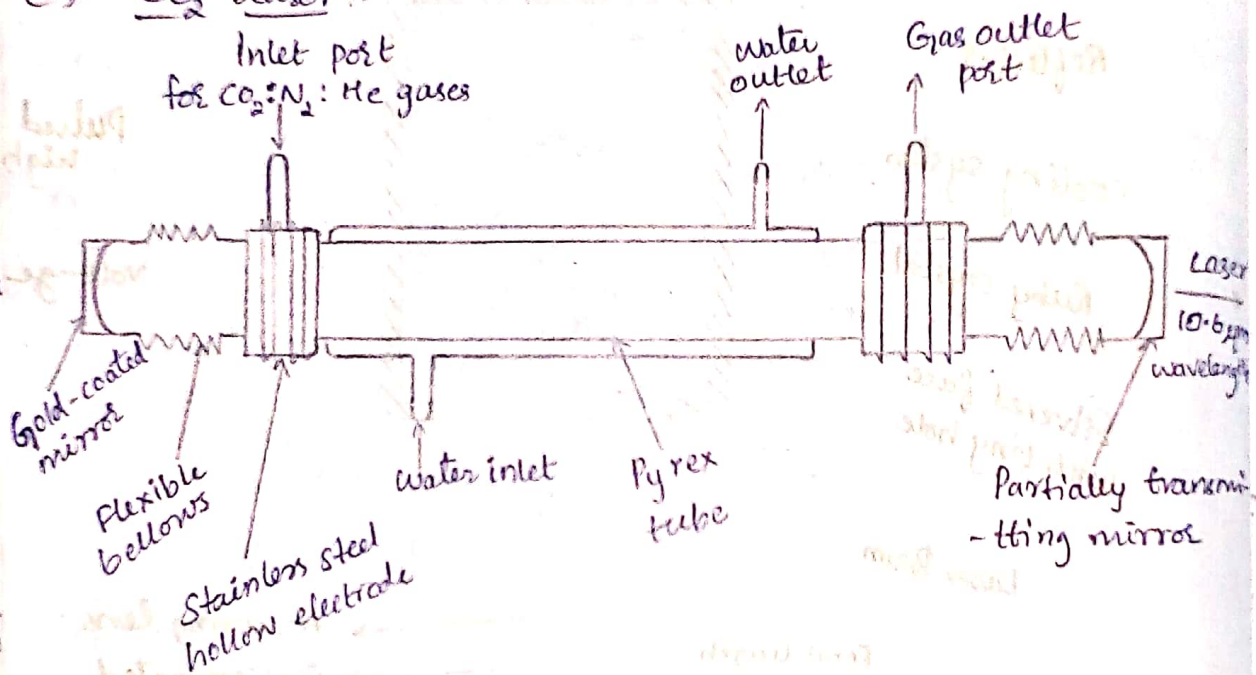 CO₂ Laser:
Inlet port
for CO₂:N₂: He gases
water
outlet
Gas outlet
port
Laser
10.6 μm
wavelength
Gold-coated
mirror
Flexible
bellows
Stainless steel
hollow electrode
water inlet
Pyrex
tube
Partially transmi-
-tting mirror